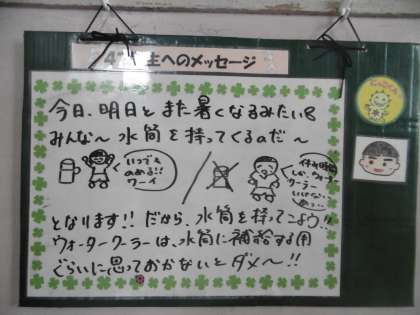 4年生へのメッセージ
今日、明日とまた暑くなるみたい。
みんな〜水筒を持ってくるのだ〜
いつでも
のめる!!
ワーイ
休み時間
しか、ウォーター
クーラー
となります!! だから、水筒を持ってこよう!!
ウォータークーラーは、水筒に補給する用
ぐらいに思っておかないとダメ〜!!